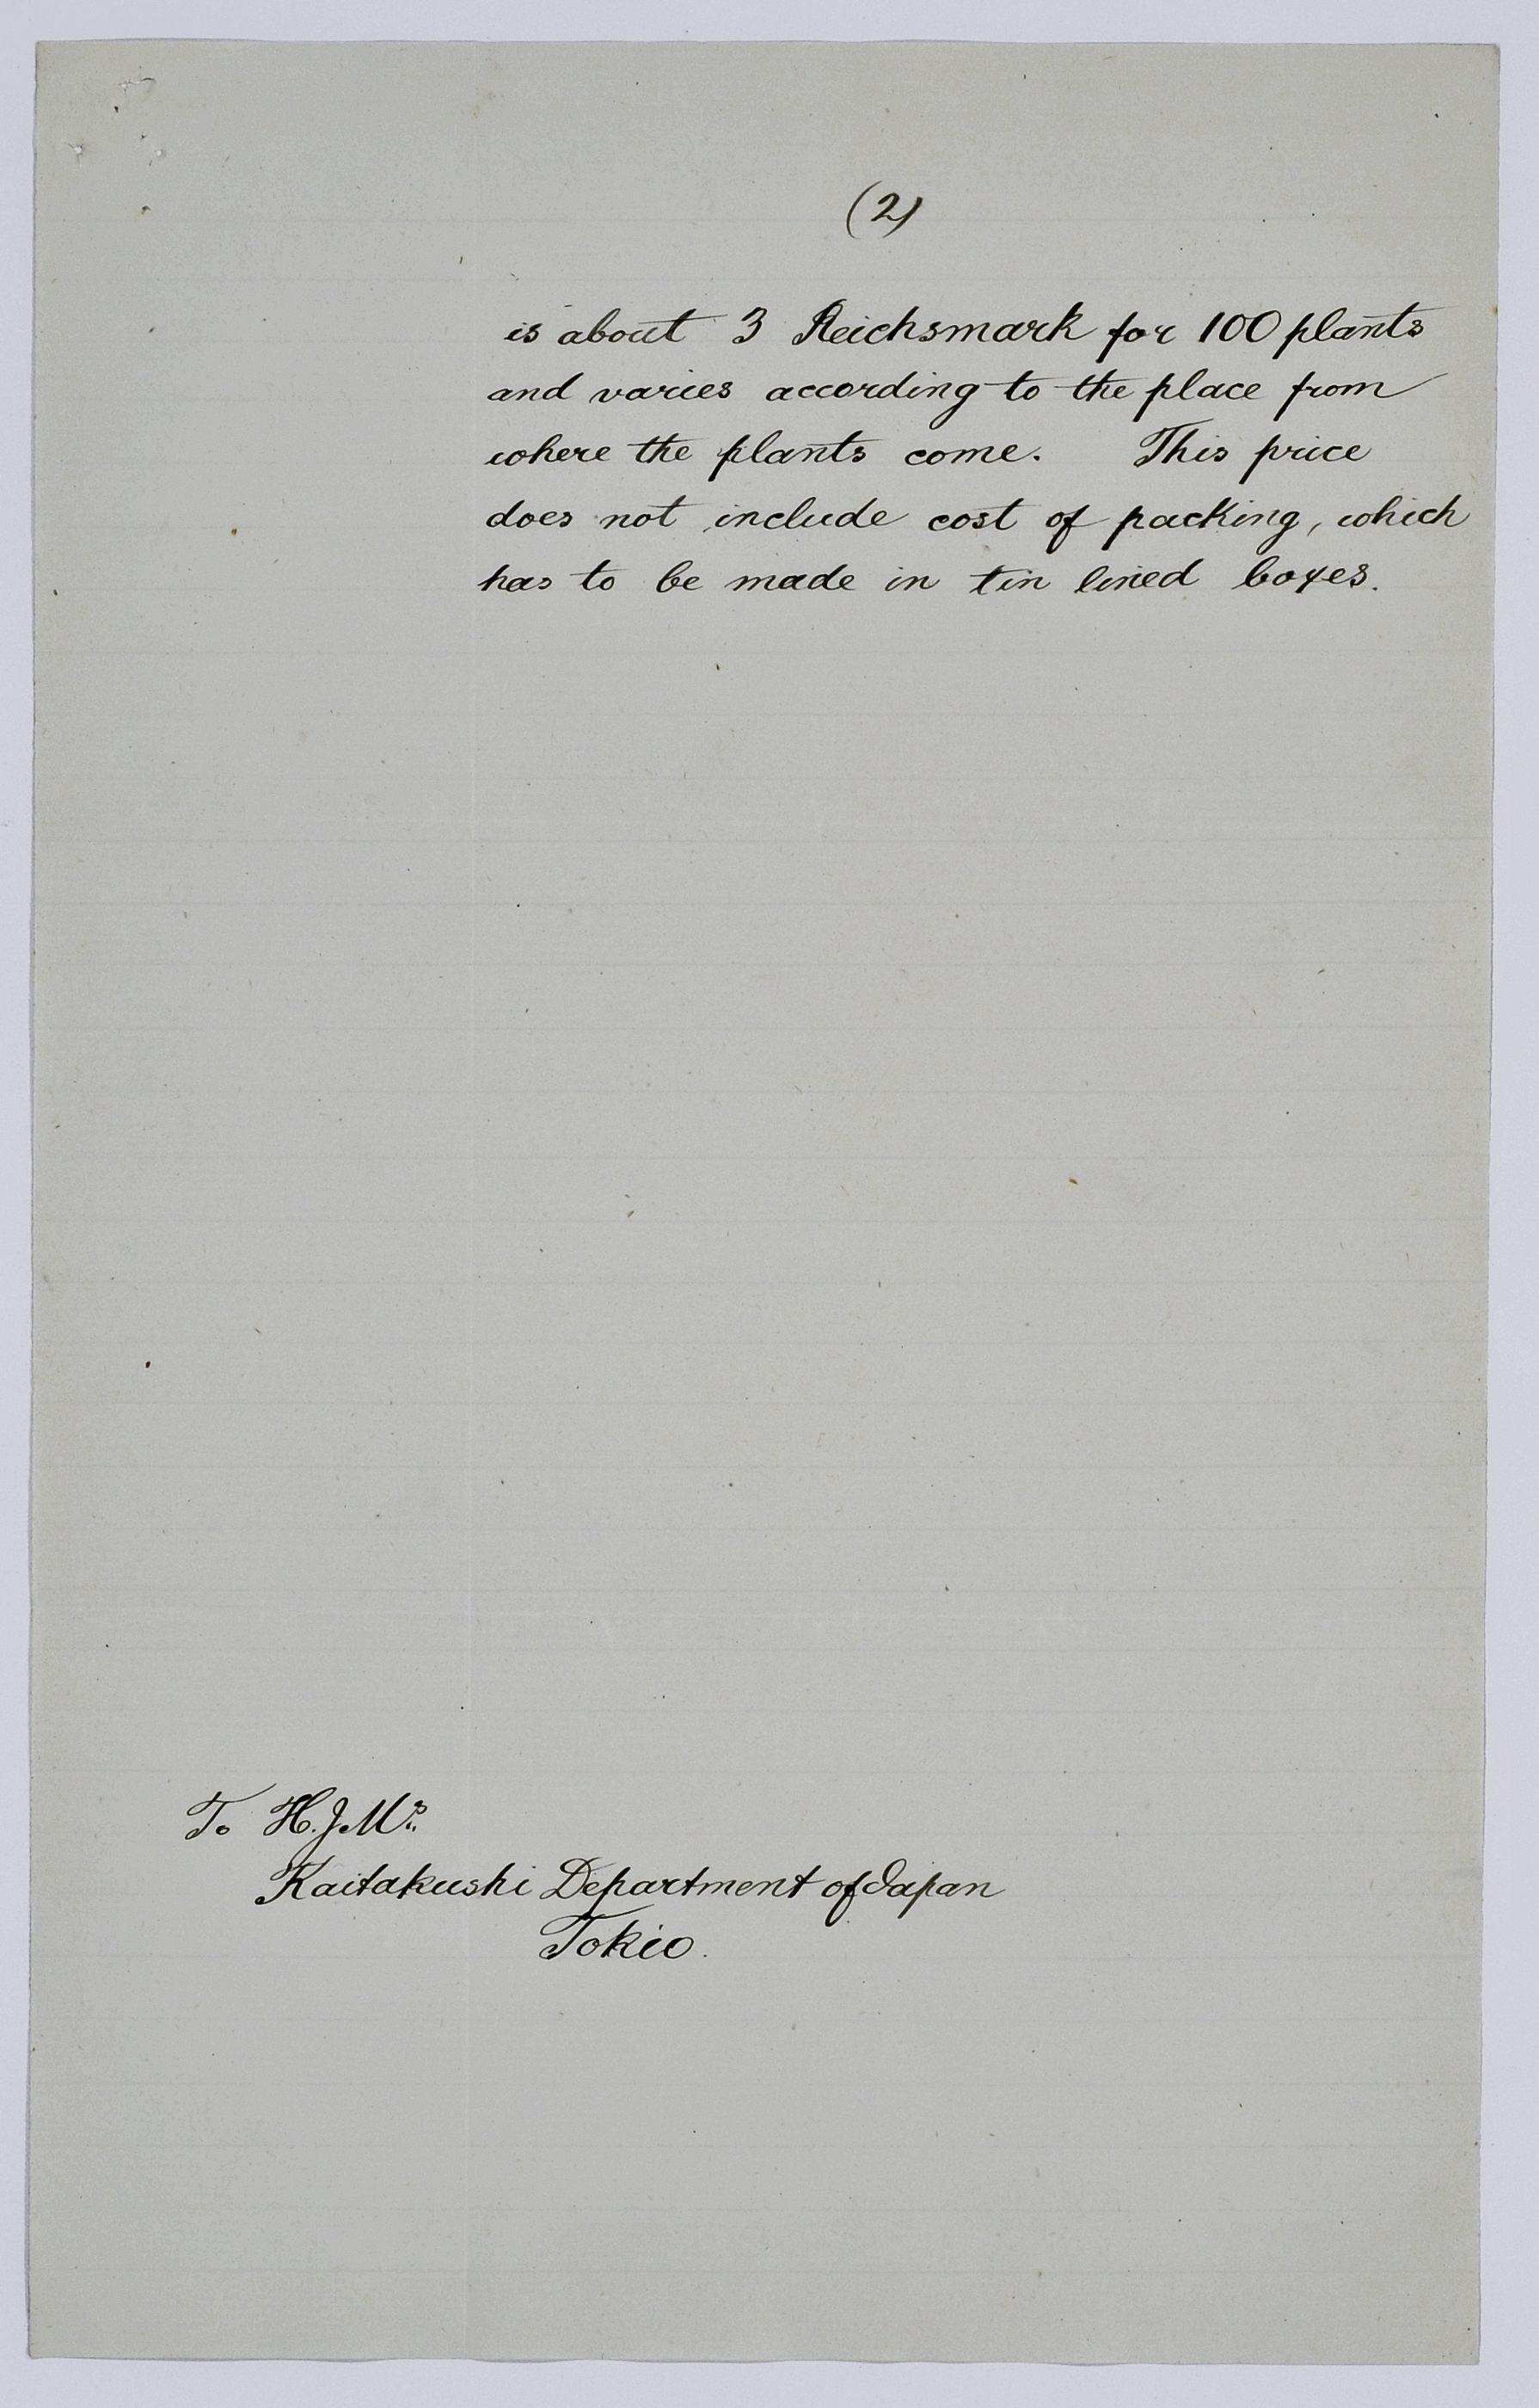 (2)
is about 3 Reichsmark for 100 plants
and varies according to the place from
where the plants come. This price
does not include cost of packing, which
has to be made in tin lined boxes.
To H.J.M's
Kaitakushi Department of Japan
Tokio.